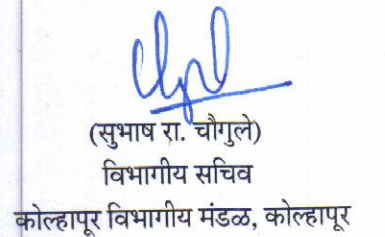 (सुभाष रा. चौगुले)
विभागीय सचिव
कोल्हापूर विभागीय मंडळ, कोल्हापूर